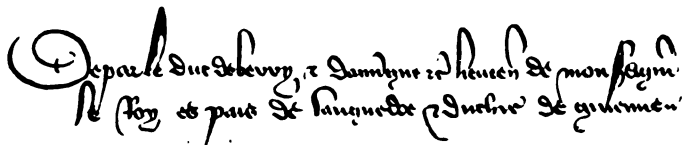 De par le duc de berry, & dauvgne &c lieuten de mons seign
le Roy es pais de languedoc & duchie de guienne